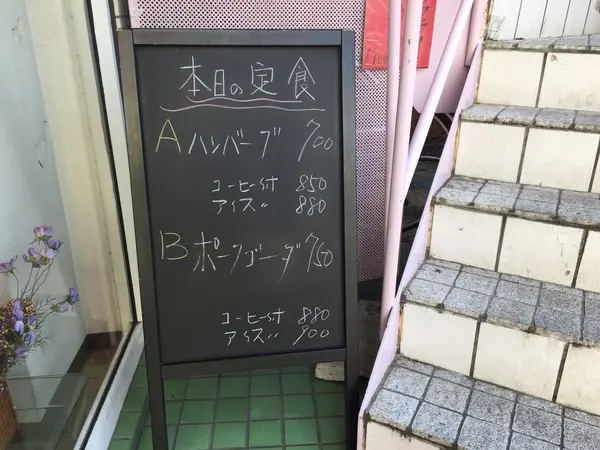 本日の定食
A ハンバーグ 700
コーヒー付 850
アイス〃 880
B ポークソーダ 750
コーヒー付 880
アイス〃 900